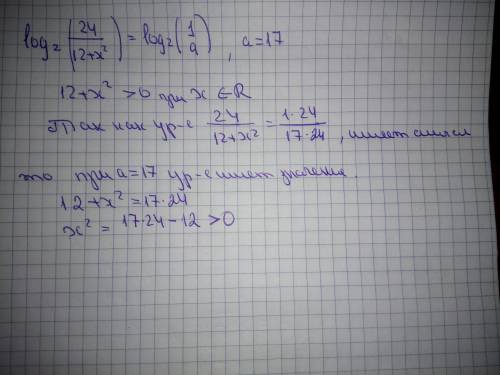 log₂(24/(12+x²)) = log₂(1/a), a=17
12+x² >0 при x ∈ R
Так как ур-е 24/(12+x²) = (1·24)/(17·24), имеет смысл
то при a=17 ур-е имеет значение.
12+x² = 17·24
x² = 17·24-12 >0